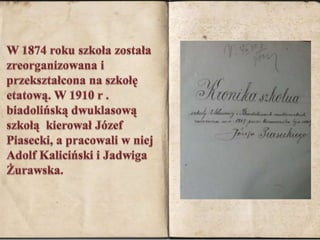 W 1874 roku szkoła została
zreorganizowana i
przekształcona na szkołę
etatową. W 1910 r .
biadolińską dwuklasową
szkołą kierował Józef
Piasecki, a pracowali w niej
Adolf Kaliciński i Jadwiga
Żurawska.
Kronika szkolna
szkoły
Józefa Piaseckiego